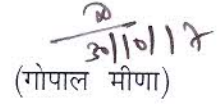 30/10/17
(गोपाल मीणा)